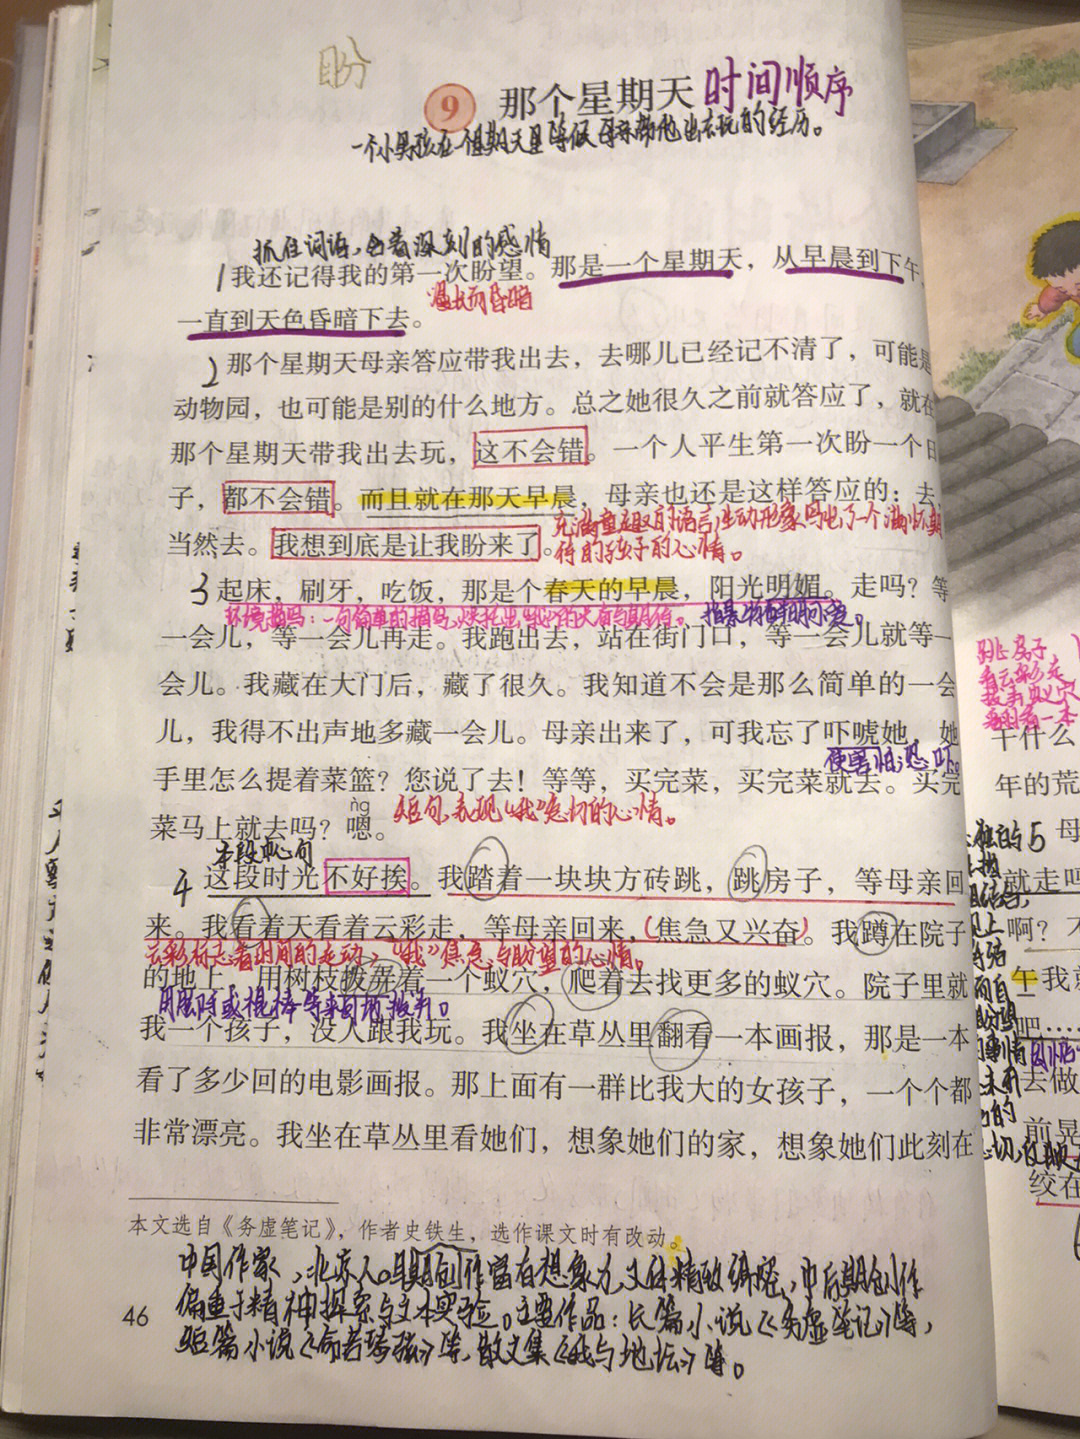 盼
9 那个星期天 时间顺序
一个小男孩在一个星期天里等候母亲带他出去玩的经历。
抓住词语，含着深刻的感情
1我还记得我的第一次盼望。那是一个星期天，从早晨到下午，
漫长而昏暗
一直到天色昏暗下去。
2 那个星期天母亲答应带我出去，去哪儿已经记不清了，可能是
动物园，也可能是别的什么地方。总之她很久之前就答应了，就在
那个星期天带我出去玩，这不会错。一个人平生第一次盼一个日
子，都不会错。而且就在那天早晨，母亲也还是这样答应的：去，
充满童趣的语言，生动形象写出了一个满怀期
当然去。我想到底是让我盼来了。
待的孩子的心情。
3 起床，刷牙，吃饭，那是个春天的早晨，阳光明媚。走吗？等
环境描写：一句简单的描写，烘托出"我"的
一会儿，等一会儿再走。我跑出去，站在街门口，等一会儿就等一
会儿。我藏在大门后，藏了很久。我知道不会是那么简单的一会
儿，我得不出声地多藏一会儿。母亲出来了，可我忘了吓唬她，她
使害怕；恐吓。
手里怎么提着菜篮？您说了去！等等，买完菜，买完菜就去。买完
ǹg
菜马上就去吗？嗯。
短句，表现"我"急切的心情。
本段中心句
4 这段时光不好挨。我踏着一块块方砖跳，跳房子，等母亲回
来。我看着天看着云彩走，等母亲回来，(焦急又兴奋)。我蹲在院子
云彩标志着时间的走动，"我"焦急与盼望的心情。
的地上，用树枝拨弄着一个蚁穴，爬着去找更多的蚁穴。院子里就
用手脚或棍棒等来回地拨动。
我一个孩子，没人跟我玩。我坐在草丛里翻看一本画报，那是一本
看了多少回的电影画报。那上面有一群比我大的女孩子，一个个都
非常漂亮。我坐在草丛里看她们，想象她们的家，想象她们此刻在
本文选自《务虚笔记》，作者史铁生，选作课文时有改动。
中国作家，北京人。早期创作富有想象力，文体精致绵密，中后期创作
偏重于精神探索与文本实验。主要作品：长篇小说《务虚笔记》等，
短篇小说《命若琴弦》等，散文集《我与地坛》等。
46
跳房子，
看云彩走
拨弄蚁穴
翻看一本
干什么
年的荒
5 母
就走吗
啊？不
午我就
吧……
去做
前晃
绞在